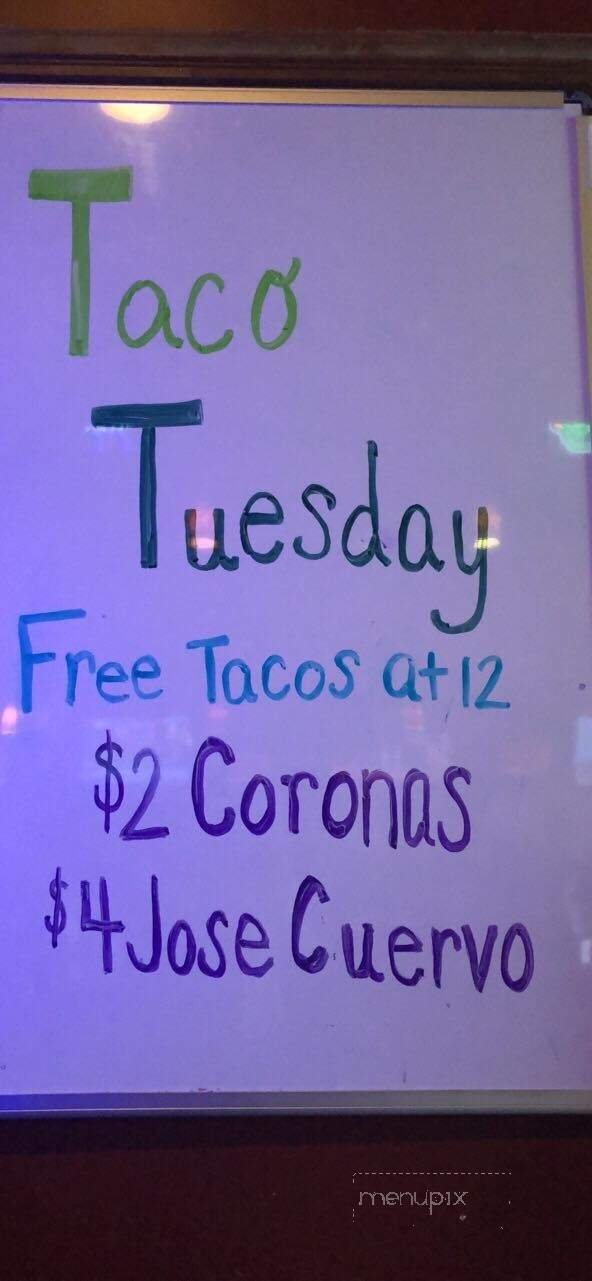 Taco
Tuesday
Free Tacos at 12
$2 Coronas
$4 Jose Cuervo
menupix